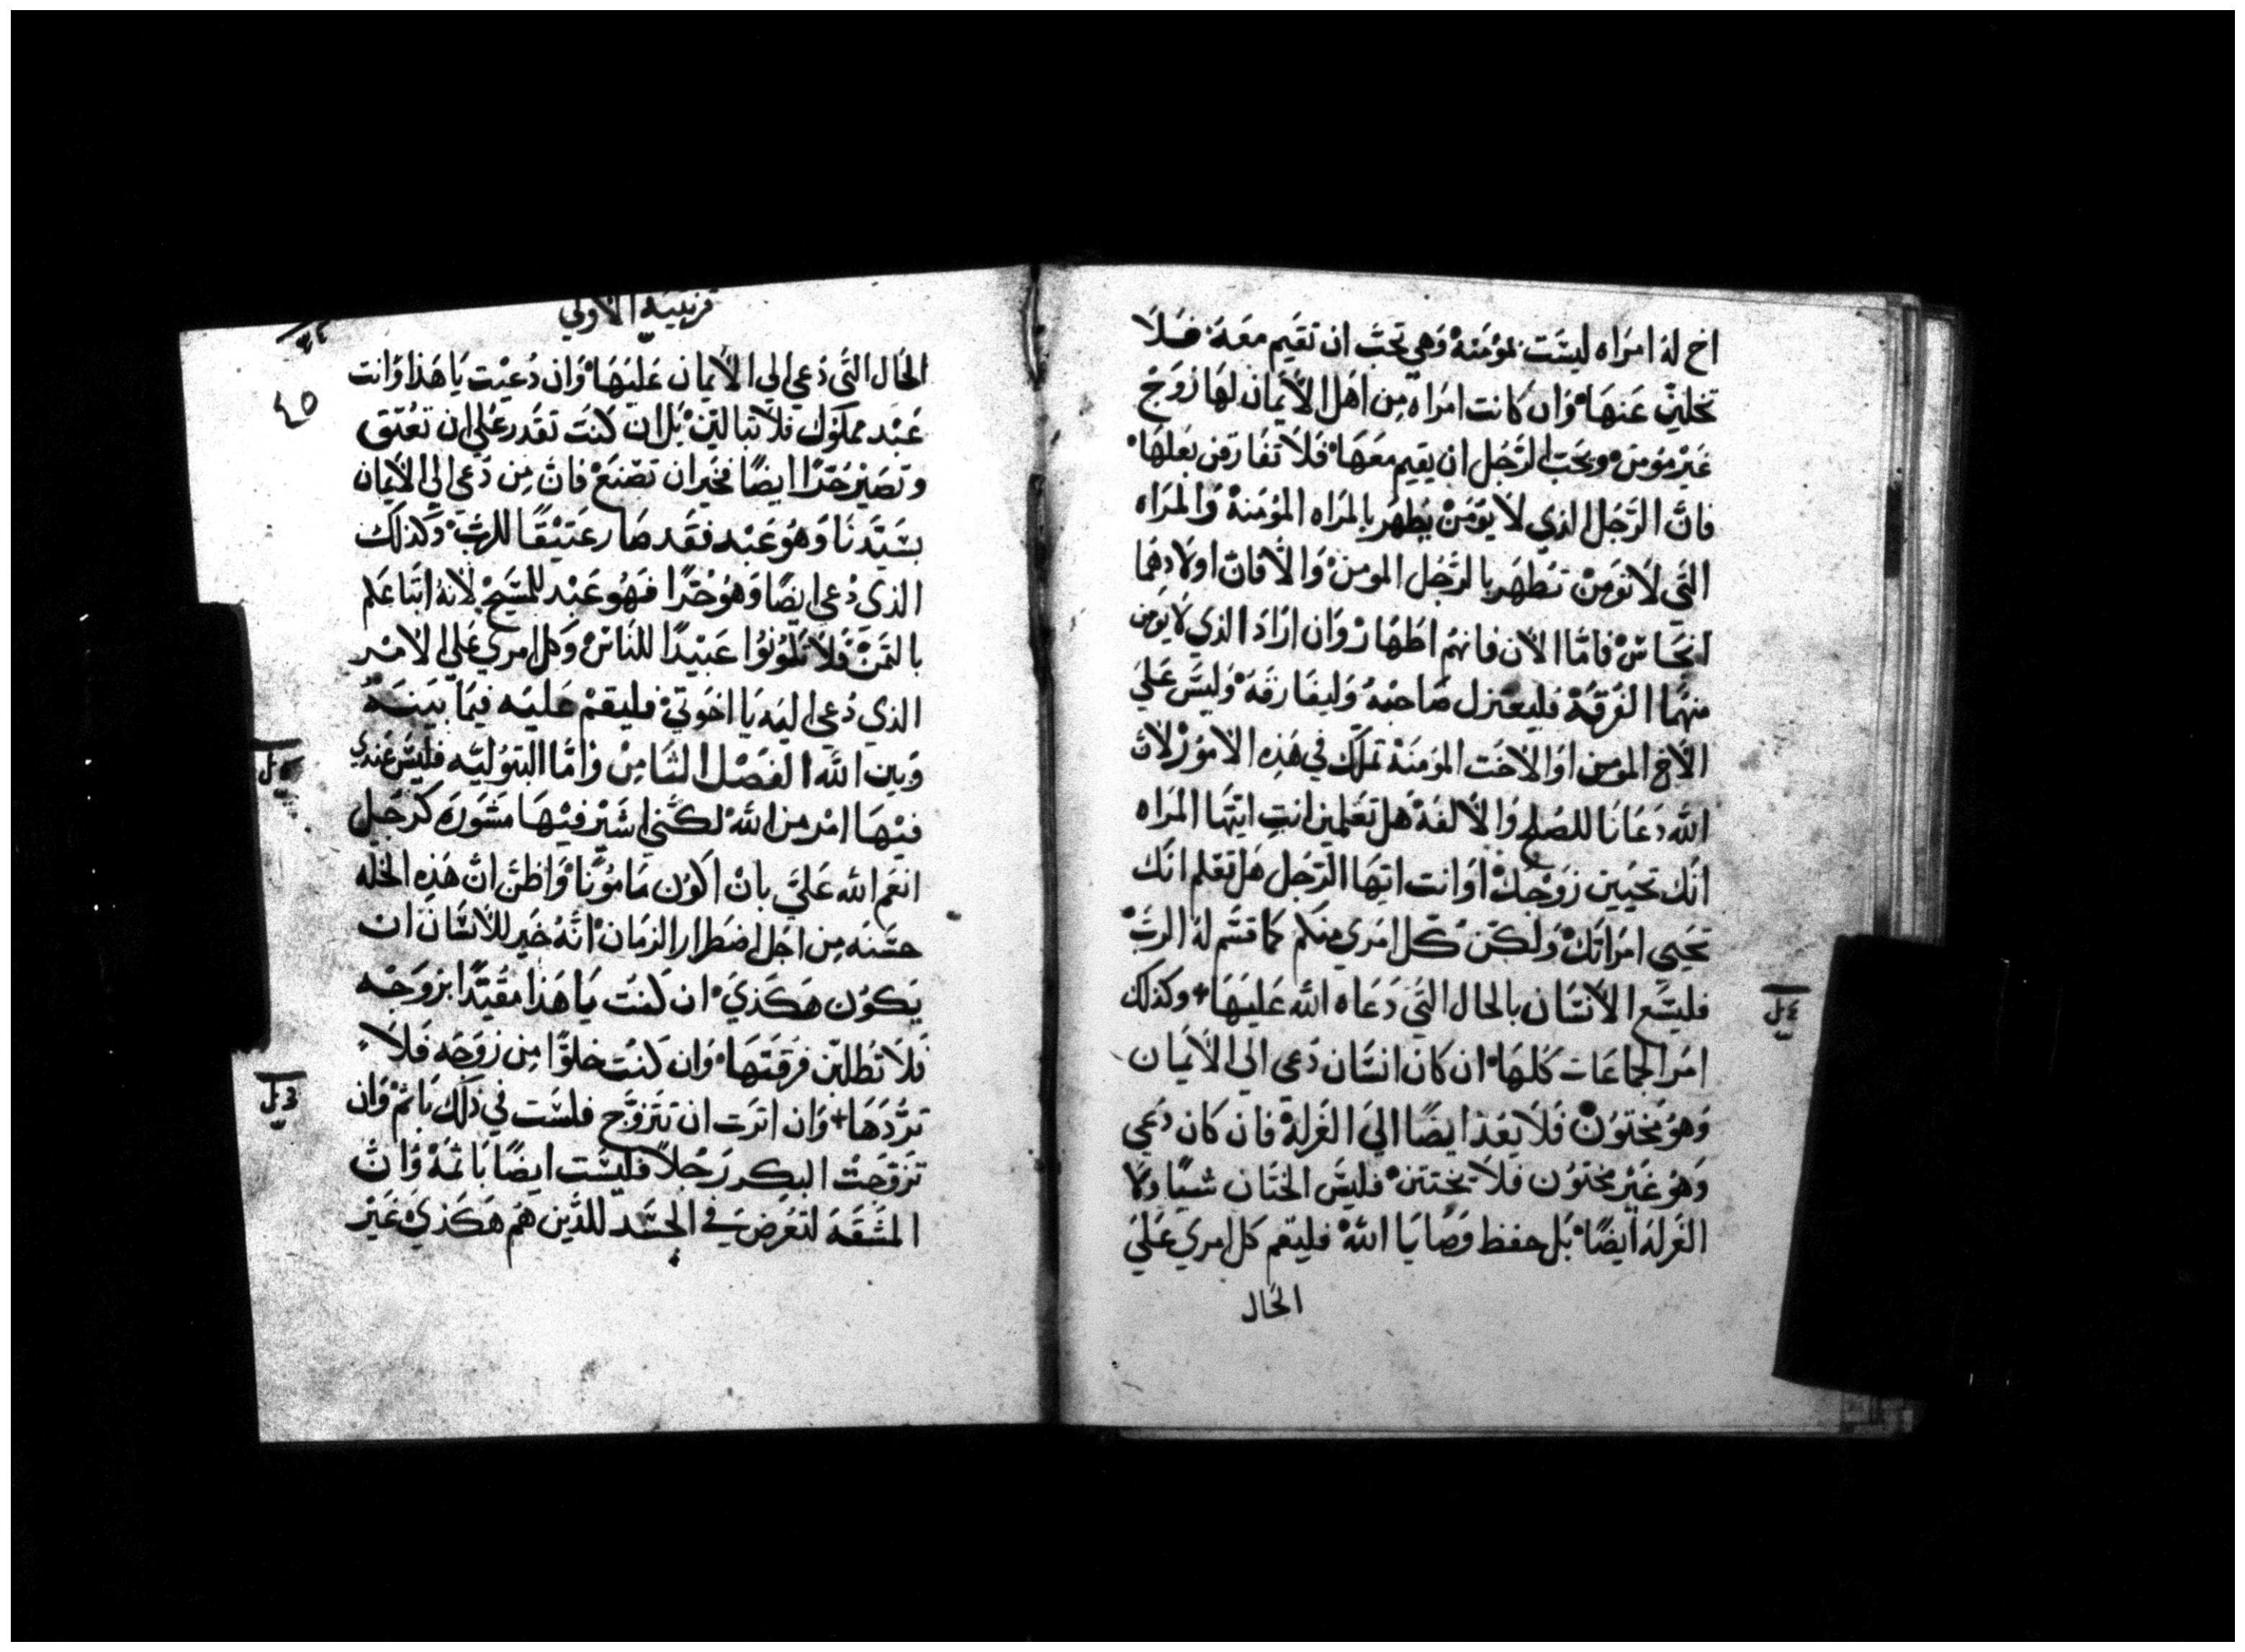 اخ لهُ امرَاه ليسَت بمؤمَنهْ وَهي تحبّ ان تقيَم معَهَ فَلَا
تخليّن عَنهَا وَان كانت امرَاه مِن اهَل الأيمَان لهَا زَوجْ
غيَرْ مؤمنْ ويحَب الرَّجُل ان يقيم معَهَا فَلاَ تفَارقن بعَلهَا
فانَّ الرَّجُل الذي لاَ يؤمَنْ يُطهر بالمرَاه المؤمنهْ وَالمرَاه
التَي لاَ تؤمَن تطهَر بالرّجُل المومنْ وَالاَّ فانّ اولاَدهمَا
انجَاسْ فامَّا الاَن فانهُم اطَهَارْ وَان ارَادَ الذي لاَ يؤمن
منهُمَا الفُرقهْ فليعَتزل صَاحبَهُ وَليفَارقهَ وَليسَ عَليَ
الاَخ المومن اوَ الاخَت المؤمَنهْ تملّك في هَذِه الامُورْ لانّ
اللّه دَعَانَا للصُلحِ وَالاُلفهْ هَل تعَلمين انتِ ايتهَا المرَاه
انّك تحيَين زوَجكْ اوَ انت ايّهَا الرّجَل هَل تعَلم انّك
تحيَي امرَاتكْ وَلكنّ كلّ امَري منكم كما قسَّم لهُ الربّ
فليسَع الأنسَان بالحَال التَي دَعَاه اللّه عَليهَا + وكذلك
امَر الجماعَات كلهَا ان كان انسَان دُعي الي الأيمَان
وَهوُ مختوُن فَلاَ يعَد ايضًا اليَ الغَرلهْ فان كان دُعي
وَهوُ غيَر مختوُن فَلاَ يختتنْ فليسَ الختَان شيًا وَلا
الغَرله ايضًا بَل حفظ وَصَايَا اللّهْ فليقم كل امري عَليَ
الحَال
قرنتيه الاولي
٤٥
الحَال التَي دُعي الي الأيمَان عَليهَا وَان دُعيْت يَا هَذا وَانت
عَبْد مملوُك فَلاَ تبالينّ بَل ان كنَت تقَدر عَلي ان تعُتق
وَتصَيْر حُرًّا ايضًا فخيَر ان تصَنعْ فانّ مِن دُعي الي الأيمَان
بسَيّدنَا وَهوُ عَبْد فقَد صَار عَتيْقًا للربّ وَكذلك
الذي دُعي ايضًا وَهوُ حُرًّا فهَوُ عَبْد للمسَيحْ لانهُ ابتَاعَكم
بالثمنْ فَلاَ تكوُنوُا عَبيْدًا للنَاسْ وَكل امري عَلي الامْر
الذي دُعي اليَه يَا اخوَتيْ فليقمْ عَليَه فيمَا بيَنَهُ
وَبين اللّه الفصَل الثَامِن وَامَّا البتوُليَّه فليسَ عَندي
فيْهَا امْر من اللّهْ لكنّي اشيَر فيْهَا مشوَرَهَ كرَجَل
انعَم اللّه عَليَّ بانْ اكوُن مَامُوُنًا وَاظنّ انّ هَذِه الخلّه
حسَنه مِن اجَل اضطرار الزمَانْ انّهُ خيَر للأنسَان ان
يَكوُن هَكذيَ ان كنَت يَا هَذا مقيَّدًا بزوَجَه
فَلاَ تطلبنّ فرقتَهَا وَان كنَت خلوًّا مِن زوَجَه فَلاَ
ترُدهَا + وَان اثرَت ان تتزوَّج فلسَت في ذلك باثمْ وَان
تزوّجَت البكر رَجُلاً فليسَت ايضًا باثمَهْ وَانّ
المشَقهَ لتعُرض في الجسَد للذين هُم هَكذيْ غيَر